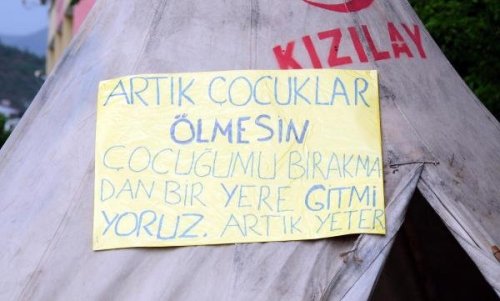 KIZILAY
ARTIK ÇOCUKLAR
ÖLMESİN
ÇOCUĞUMU BIRAKMA
DAN BİR YERE GİTMİ
YORUZ. ARTIK YETER